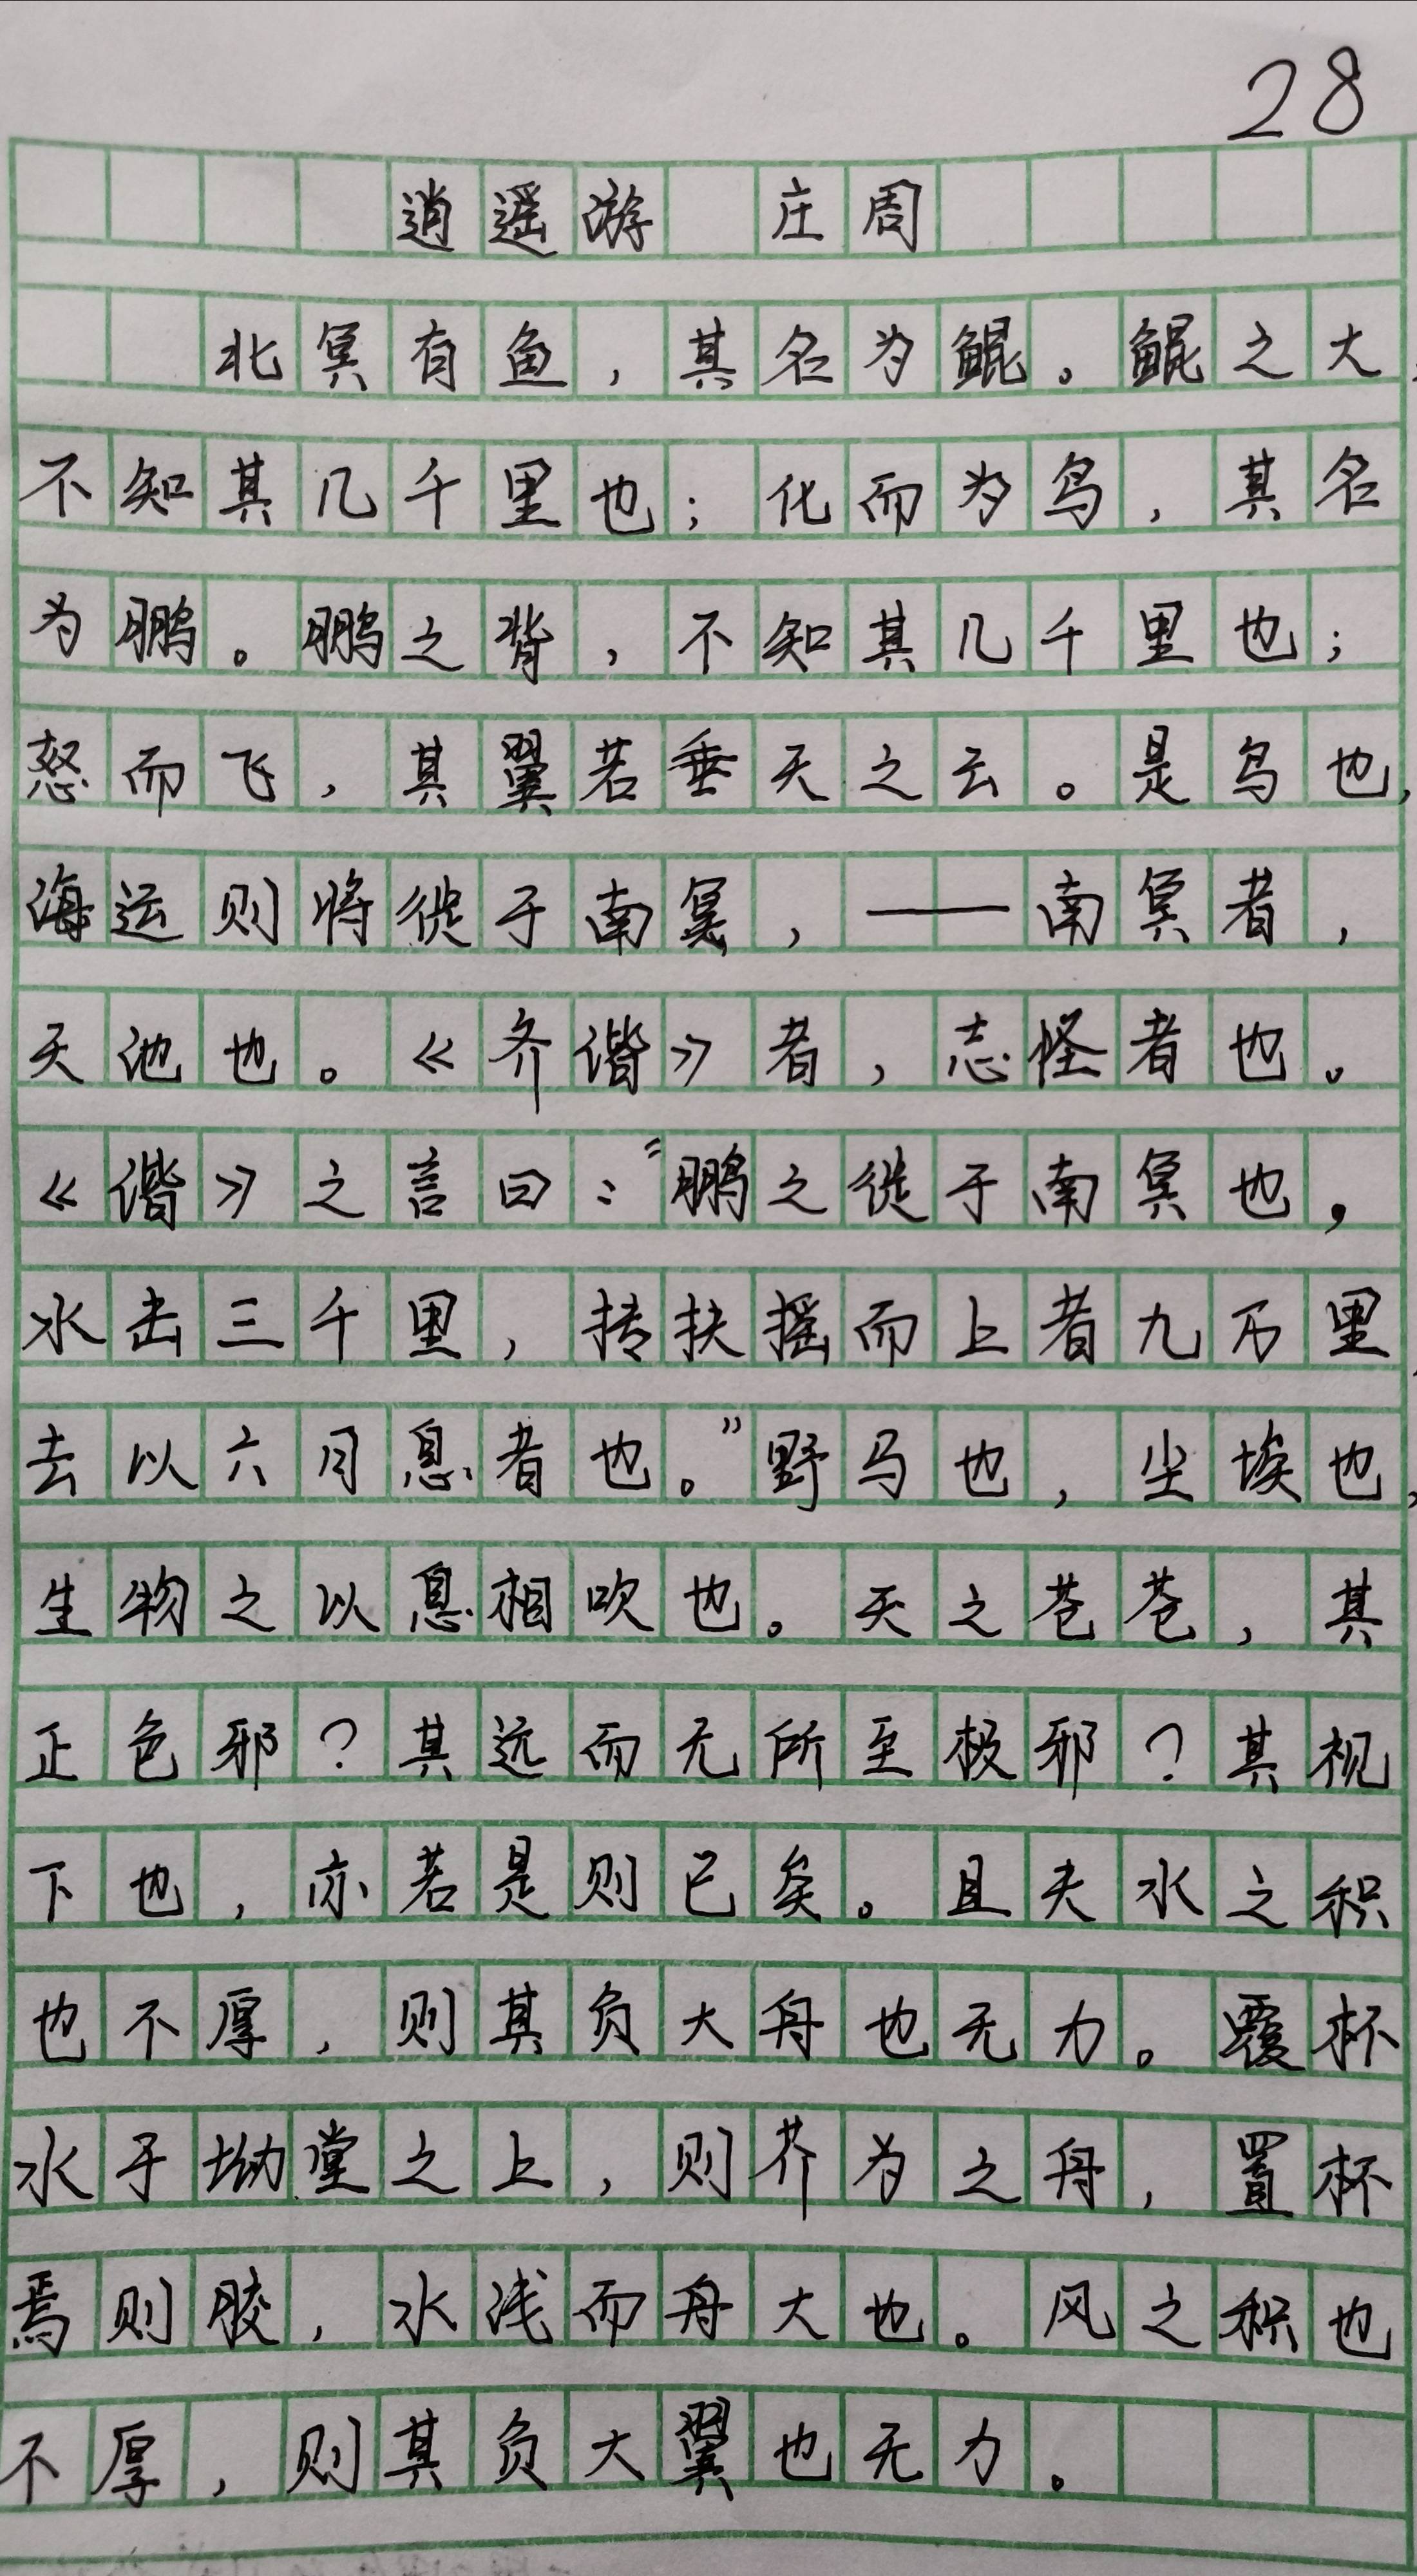 28
逍遥游 庄周
北冥有鱼，其名为鲲。鲲之大，
不知其几千里也；化而为鸟，其名
为鹏。鹏之背，不知其几千里也；
怒而飞，其翼若垂天之云。是鸟也，
海运则将徙于南冥，——南冥者，
天池也。《齐谐》者，志怪者也。
《谐》之言曰：“鹏之徙于南冥也，
水击三千里，抟扶摇而上者九万里，
去以六月息者也。”野马也，尘埃也，
生物之以息相吹也。天之苍苍，其
正色邪？其远而无所至极邪？其视
下也，亦若是则已矣。且夫水之积
也不厚，则其负大舟也无力。覆杯
水于坳堂之上，则芥为之舟，置杯
焉则胶，水浅而舟大也。风之积也
不厚，则其负大翼也无力。